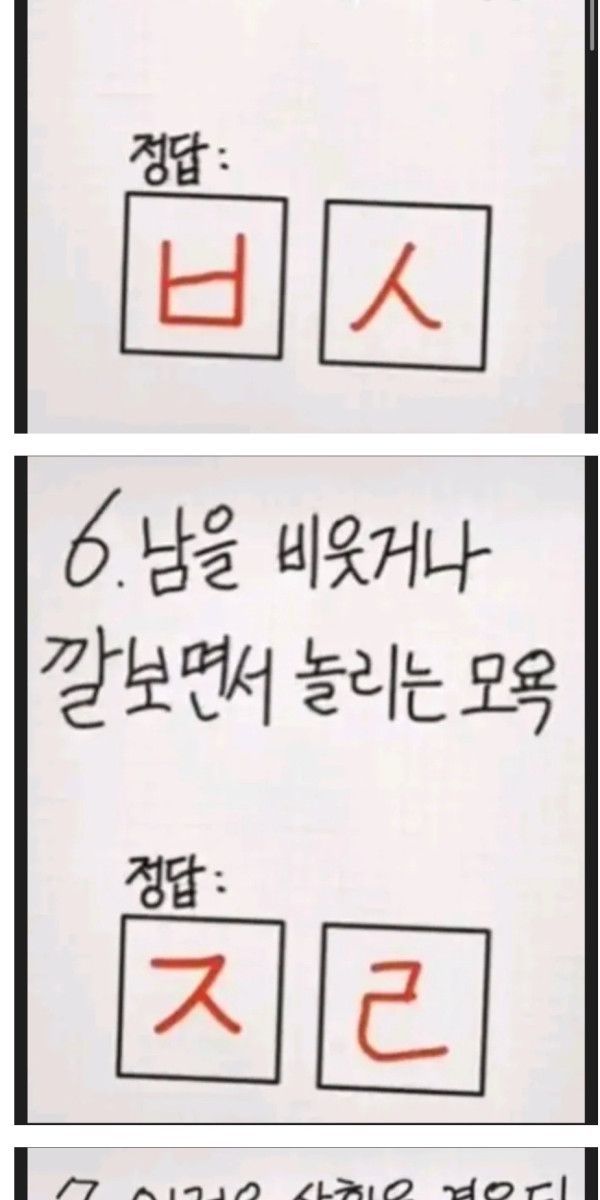 정답:
ㅂ ㅅ
6. 남을 비웃거나
깔보면서 놀리는 모욕
정답:
ㅈ ㄹ